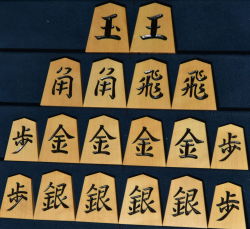 玉王
角角飛飛
歩金金金金歩
歩銀銀銀銀歩